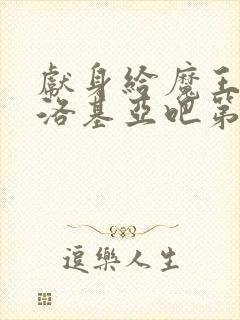 獻身給魔王
洛基亞吧第
逗樂人生